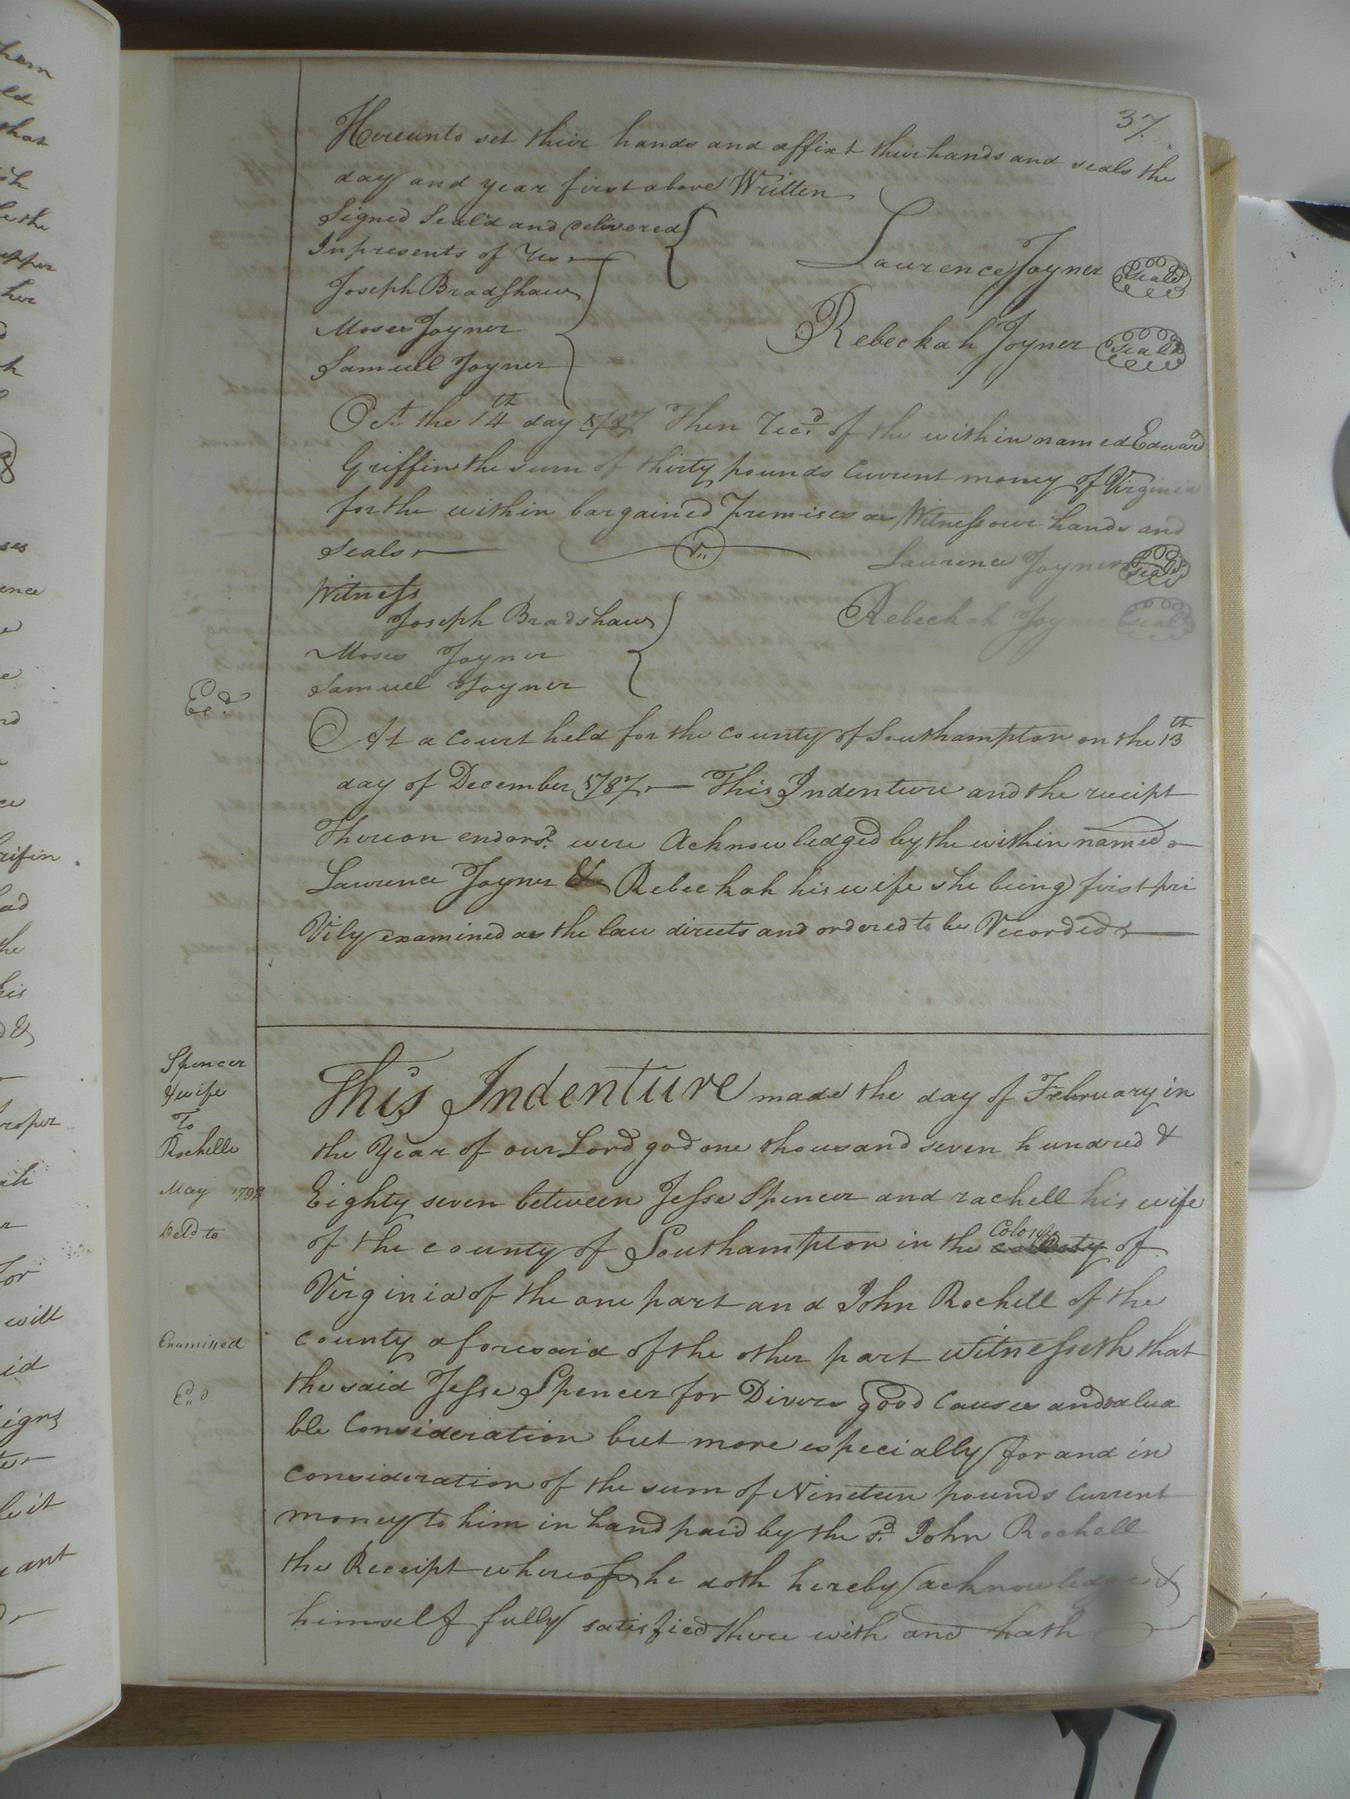 37.
Hereunto set thire hands and affixt their hands and seals the
day and year first above Written
Signed Seal'd and delivered
In presents of us
Laurence Joyner Seal
Joseph Bradshaw
Moses Joyner
Rebeckah Joyner Seal
Samuel Joyner
Oct. the 14th day 1787 Then Recd. of the within named Edward
Griffin the sum of thirty pounds current money of Virginia
for the within bargained Premises as Witness our hands and
Seals
Laurence Joyner Seal
Witness
Joseph Bradshaw
Rebeckah Joy Seal
Moses Joyner
Samuel Joyner
Exd.
At a Court held for the county of Southampton on the 13th
day of December 1787. This Indenture and the receipt
Thereon endorsd. were Acknowledged by the within named
Lawrence Joyner & Rebeckah his wife she being first pri
Vily examined as the law directs and ordered to be Recorded
Spencer
& wife
To
Rochelle
May 1792
Deld to
Examined
Exd
This Indenture made the day of February in
the Year of our Lord god one thousand seven hundred &
Eighty seven between Jesse Spencer and rachell his wife
of the county of Southampton in the Colony of
Virginia of the one part and John Rochell of the
county aforesaid of the other part witnesseth that
the said Jesse Spencer for Divers good Causes and valua
ble Consideration but more especially for and in
Consideration of the sum of Nineteen pounds Current
money to him in hand paid by the sd. John Rochell
the Receipt whereof he doth hereby acknowledge &
himself fully satisfied there with and hath